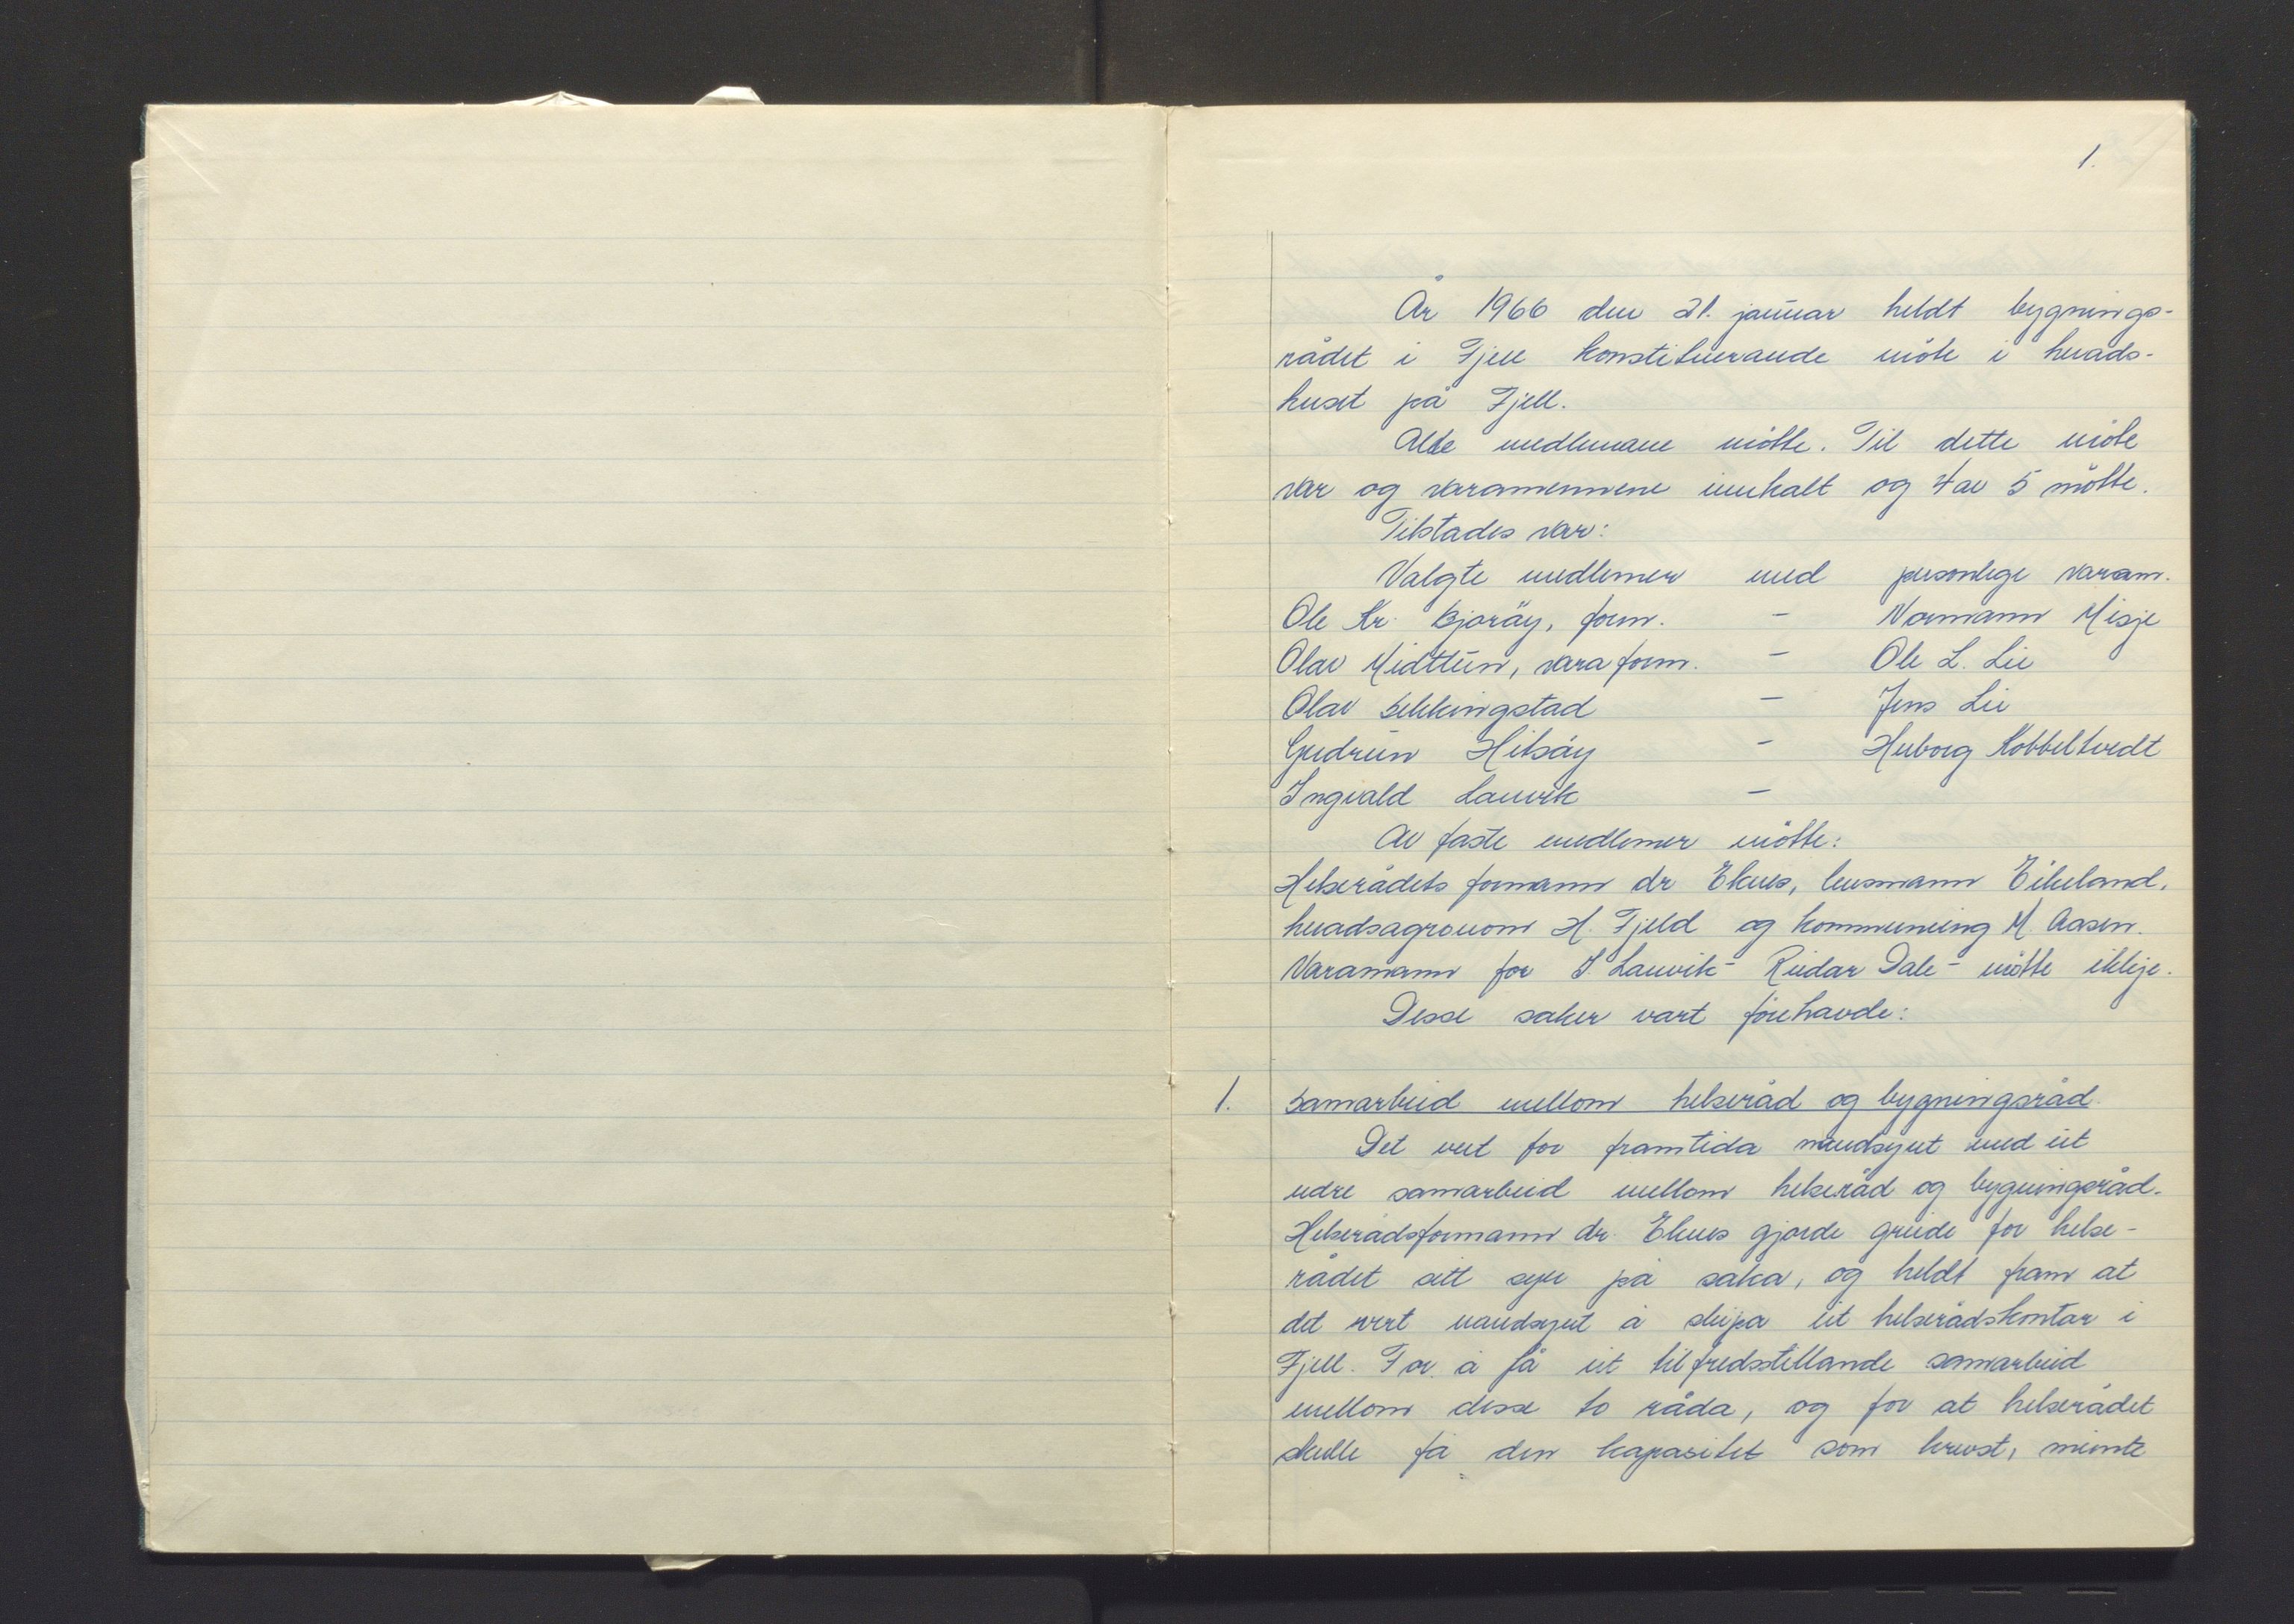 1.
År 1966 den 21. januar heldt bygnings-
rådet i Fjell konstituerande möte i herads-
huset på Fjell.
Alle medlemane mötte. Til dette möte
var og varamennene innkalt og 4 av 5 mötte.
Tilstades var:
Valgte medlemer med personlege varam.
Ole Kr. Bjoröy, form. - Normann Misje
Olav Midttun, varaform. - Ole L. Lie
Olav Sekkingstad - Jens Lie
Gudrun Hitsöy - Herborg Kobbeltvedt
Ingvald Lauvik -
Av faste medlemer mötte:
Helserådets formann dr Eknes, lensmann Eikeland,
heradsagronom H. Fjeld og kommuneing M. Aasen.
Varamann for I. Lauvik - Reidar Dale - mötte ikkje.
Desse saker vart förehavde:
1. Samarbeid mellom helseråd og bygningsråd.
Det vert for framtida naudsynt med eit
nedre samarbeid mellom helseråd og bygningsråd.
Helserådsformann dr. Eknes gjorde greide for helse-
rådet sitt syn på saka, og heldt fram at
det vert naudsynt å skipa eit helserådskontor i
Fjell. For å få eit tilfredsstillande samarbeid
mellom desse to råda, og for at helserådet
skulle få den kapasitet som krevst, meinte